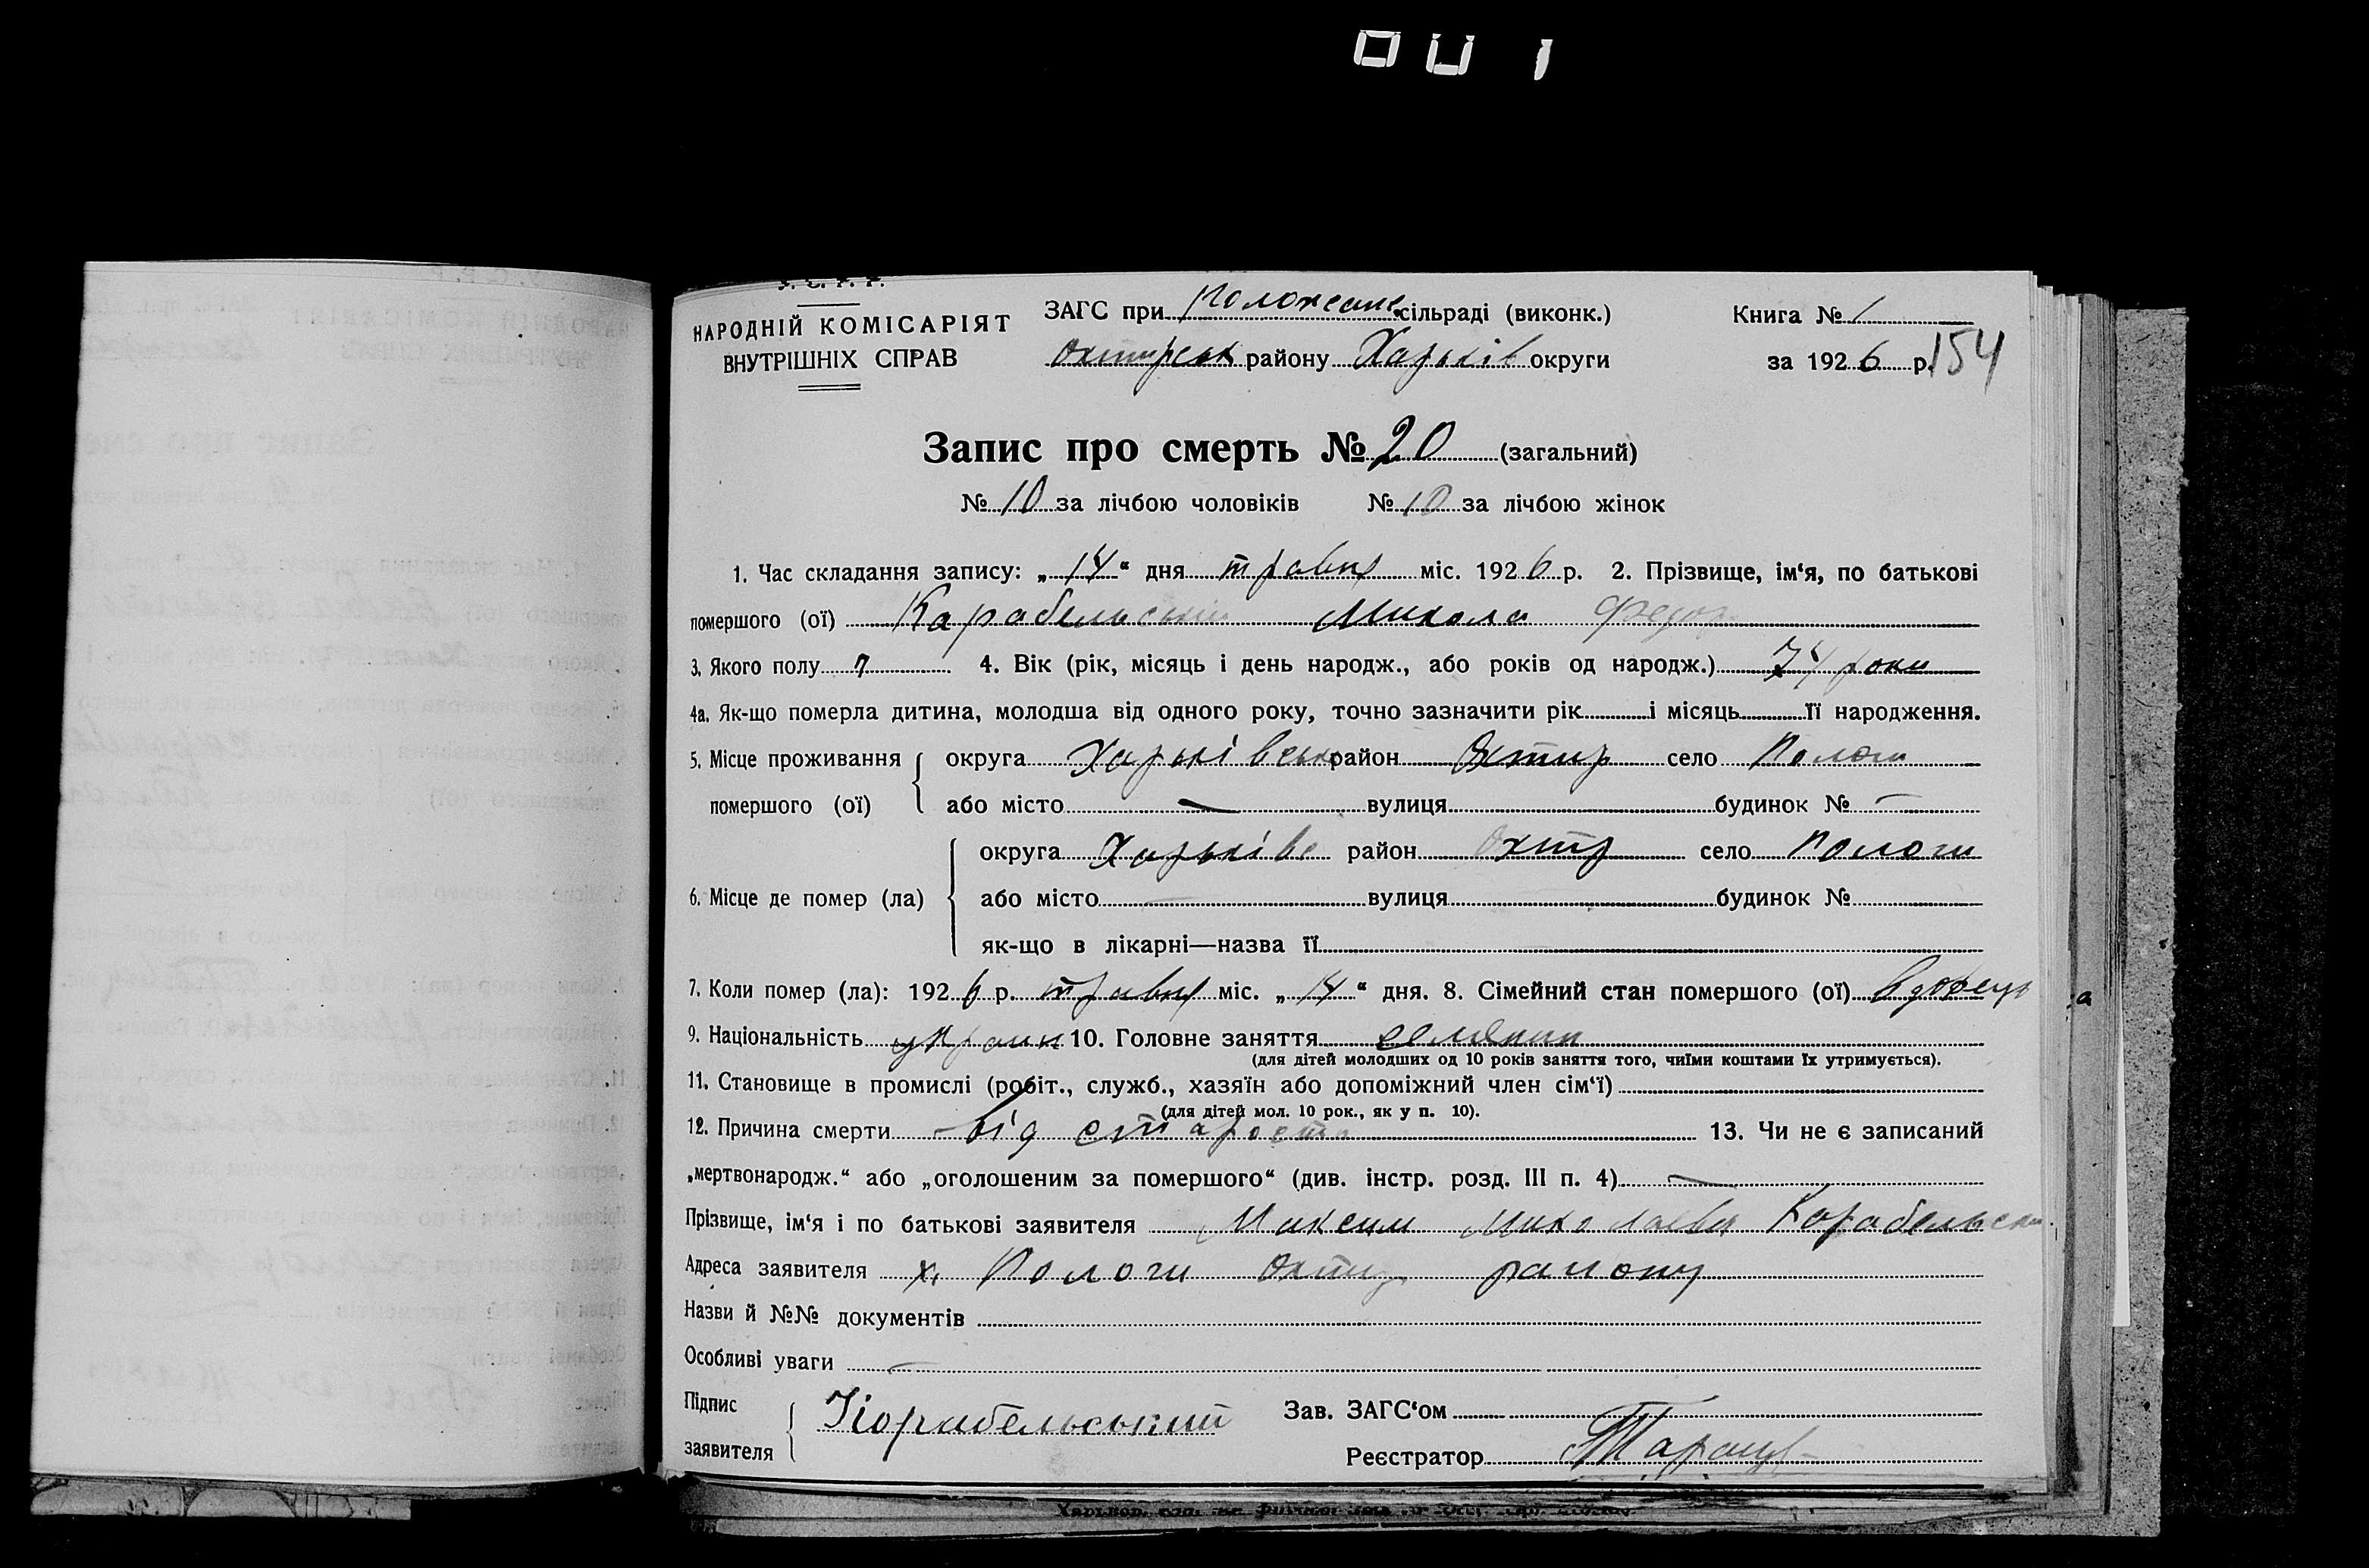 У. С. Р. Р.
НАРОДНІЙ КОМІСАРІЯТ
ВНУТРІШНІХ СПРАВ
ЗАГС при сільраді (виконк.)
району Харьків округи
Книга № 1
за 1926 р.
154
Запис про смерть № 20 (загальний)
№ 10 за лічбою чоловіків № 10 за лічбою жінок
1. Час складання запису: „14“ дня травня міс. 1926 р. 2. Прізвище, ім‘я, по батькові
помершого (ої) Карабельский Микола Федор
3. Якого полу 4. Вік (рік, місяць і день народж., або років од народж.) 74 роки
4а. Як-що померла дитина, молодша від одного року, точно зазначити рік і місяць її народження.
5. Місце проживання помершого (ої) округа Харьківська район Охтир село Пологи
або місто — вулиця будинок № —
6. Місце де помер (ла) округа Харьківс район Охтр село Пологи
або місто вулиця будинок №
як-що в лікарні—назва її
7. Коли помер (ла): 1926 р. травня міс. „14“ дня. 8. Сімейний стан помершого (ої) вдовець
9. Національність украин 10. Головне заняття
(для дітей молодших од 10 років заняття того, чиїми коштами їх утримується).
11. Становище в промислі (робіт., служб., хазяїн або допоміжний член сім‘ї)
(для дітей мол. 10 рок., як у п. 10).
12. Причина смерти від старости 13. Чи не є записаний
„мертвонародж.“ або „оголошеним за помершого“ (див. інстр. розд. III п. 4) —
Прізвище, ім‘я і по батькові заявителя Максим Миколаєвич Карабельский
Адреса заявителя х. Пологи Охтир району
Назви й №№ документів
Особливі уваги —
Підпис заявителя Корабельський
Зав. ЗАГС‘ом
Реєстратор